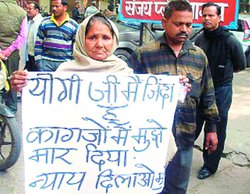 संजय प्ल
योगी जी मैं जिंदा
हूँ
कागजों में मुझे
मार दिया।
न्याय दिलाओ